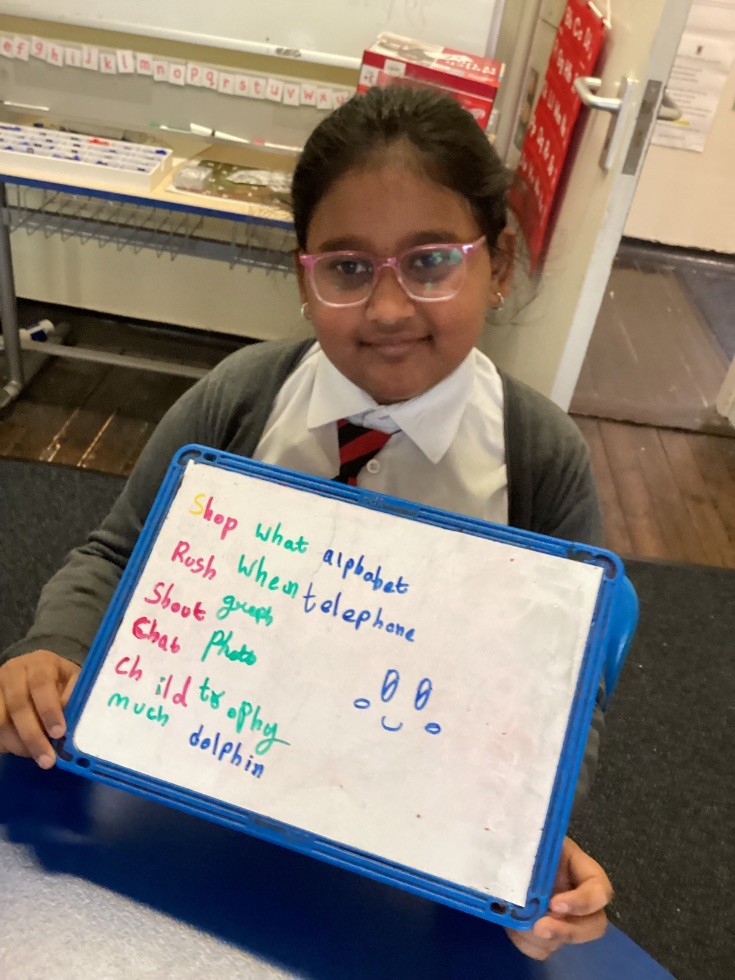 e f g h i j k l m n o p q r s t u v w x
Shop what alphabet
Rush When telephone
Shout graph
Chat Photo
Child trophy
much dolphin